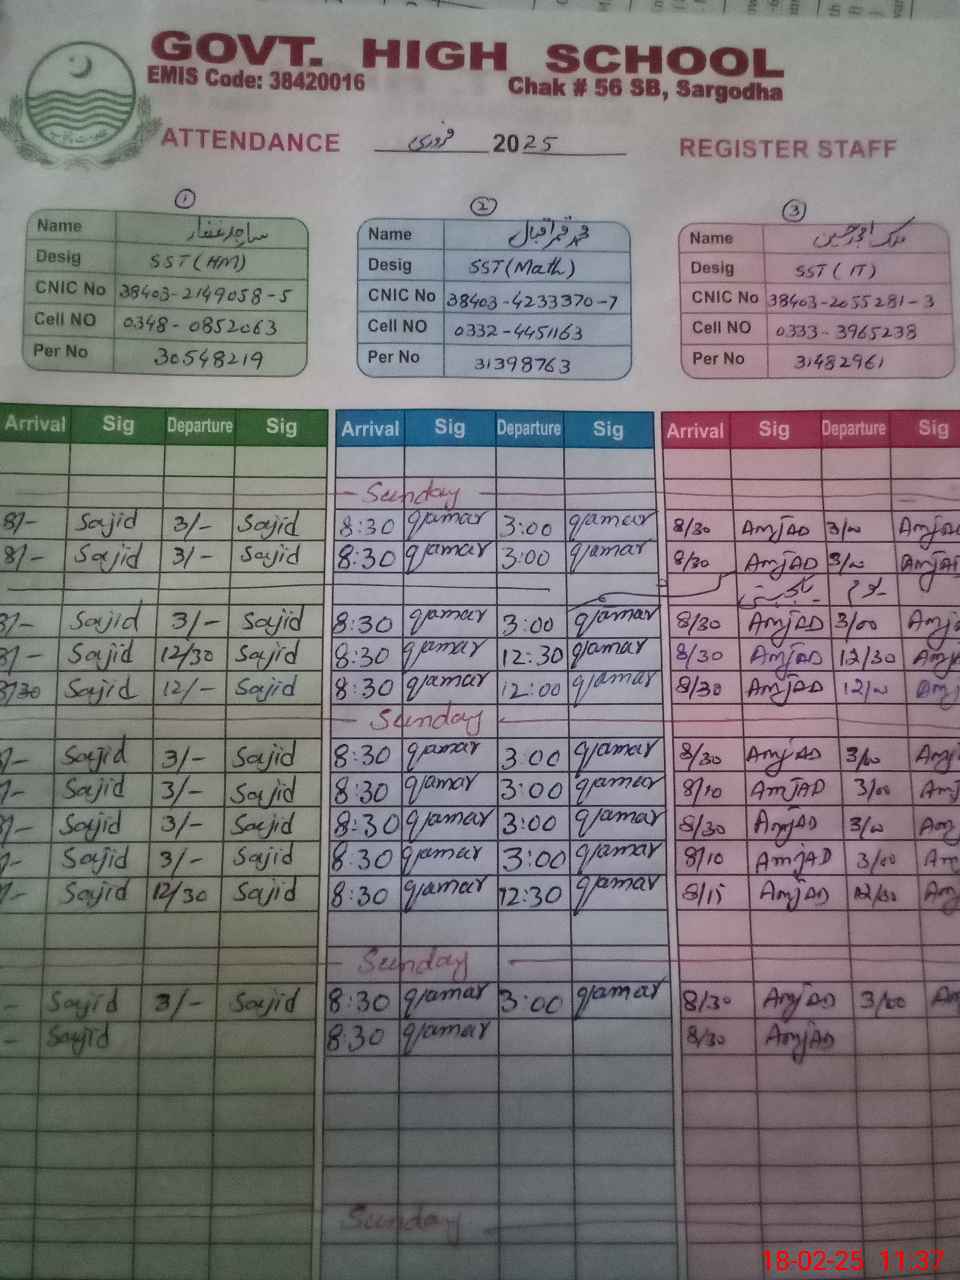 GOVT. HIGH SCHOOL
EMIS Code: 38420016 Chak # 56 SB, Sargodha
ATTENDANCE فروری 2025 REGISTER STAFF
1 2 3
Name ساجد غفار Name محمد قمر اقبال Name ملک امجد حسین
Desig SST (HM) Desig SST (Math) Desig SST (IT)
CNIC No 38403-2149058-5 CNIC No 38403-4233370-7 CNIC No 38403-2055281-3
Cell NO 0348-0852063 Cell NO 0332-4451163 Cell NO 0333-3965238
Per No 30548219 Per No 31398763 Per No 31482961
Arrival Sig Departure Sig Arrival Sig Departure Sig Arrival Sig Departure Sig
Sunday
8/- Sajid 3/- Sajid 8:30 qamar 3:00 qamar 8/30 AmjAD 3/00 AmjAD
8/- Sajid 3/- Sajid 8:30 qamar 3:00 qamar 8/30 AmjAD 3/00 AmjAD
8/- Sajid 3/- Sajid 8:30 qamar 3:00 qamar 8/30 AmjAD 3/00 Amj
8/- Sajid 12/30 Sajid 8:30 qamar 12:30 qamar 8/30 AmjAD 12/30 Amj
8/30 Sajid 12/- Sajid 8:30 qamar 12:00 qamar 8/30 AmjAD 12/00 Amj
Sunday
/- Sajid 3/- Sajid 8:30 qamar 3:00 qamar 8/30 AmjAD 3/00 Amj
/- Sajid 3/- Sajid 8:30 qamar 3:00 qamar 8/10 AmjAD 3/00 Amj
/- Sajid 3/- Sajid 8:30 qamar 3:00 qamar 8/30 AmjAD 3/00 Amj
/- Sajid 3/- Sajid 8:30 qamar 3:00 qamar 8/10 AmjAD 3/00 Am
/- Sajid 12/30 Sajid 8:30 qamar 12:30 qamar 8/15 AmjAD 12/30 Am
Sunday
- Sajid 3/- Sajid 8:30 qamar 3:00 qamar 8/30 AmjAD 3/00 Am
- Sajid 8:30 qamar 8/30 AmjAD
Sunday
18-02-25 11:37